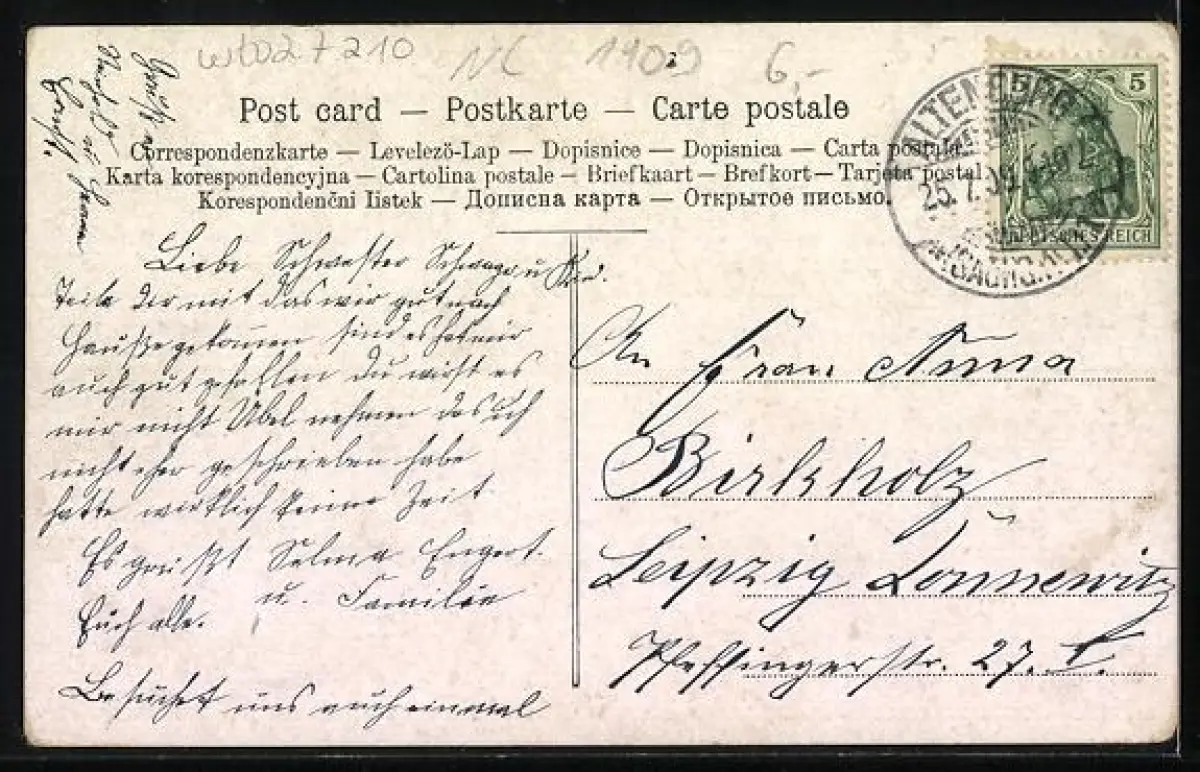 wb027210
NC 1909 6,-
Post card — Postkarte — Carte postale
Correspondenzkarte — Levelező-Lap — Dopisnice — Dopisnica — Carta postala
Karta korespondencyjna — Cartolina postale — Briefkaart — Brefkort — Tarjeta postal
Korespondenčni listek — Дописна карта — Открытое письмо.
5 5
DEUTSCHES REICH
ALTENBURG
25.7.09.
Liebe Schwester Schwager u Kind.
Teile Dir mit das wir gut nach
Hauße gekommen sind es hat mir
auch gut gefallen Du wirst es
mir nicht Übel nehmen das ich
nicht eher geschrieben habe
hatte wirklich keine Zeit.
Es grüßt Selma Engert.
Euch alle. u. Familie
Besuchet uns auch einmal
An Frau Anna
Birkholz
Leipzig Connewitz
Pfeffingerstr. 27. I.